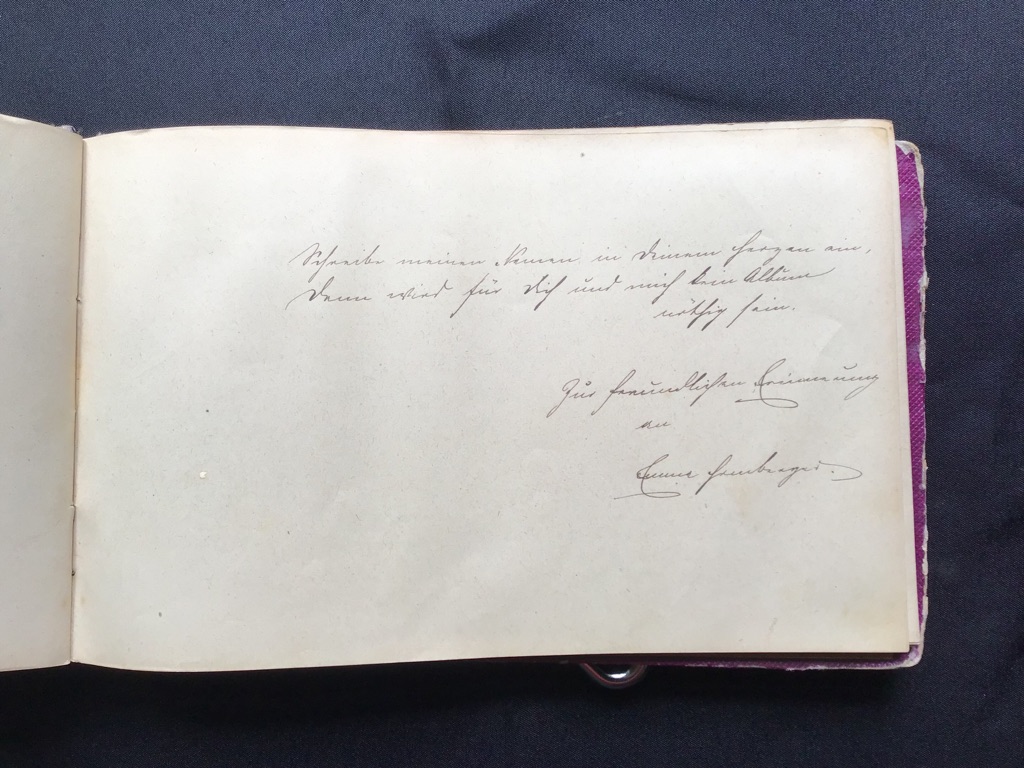 Schreibe meinen Namen in Deinem Herzen ein,
Dann wird für Dich und mich kein Album
nöthig sein.
Zur freundlichen Erinnerung
an
Emma